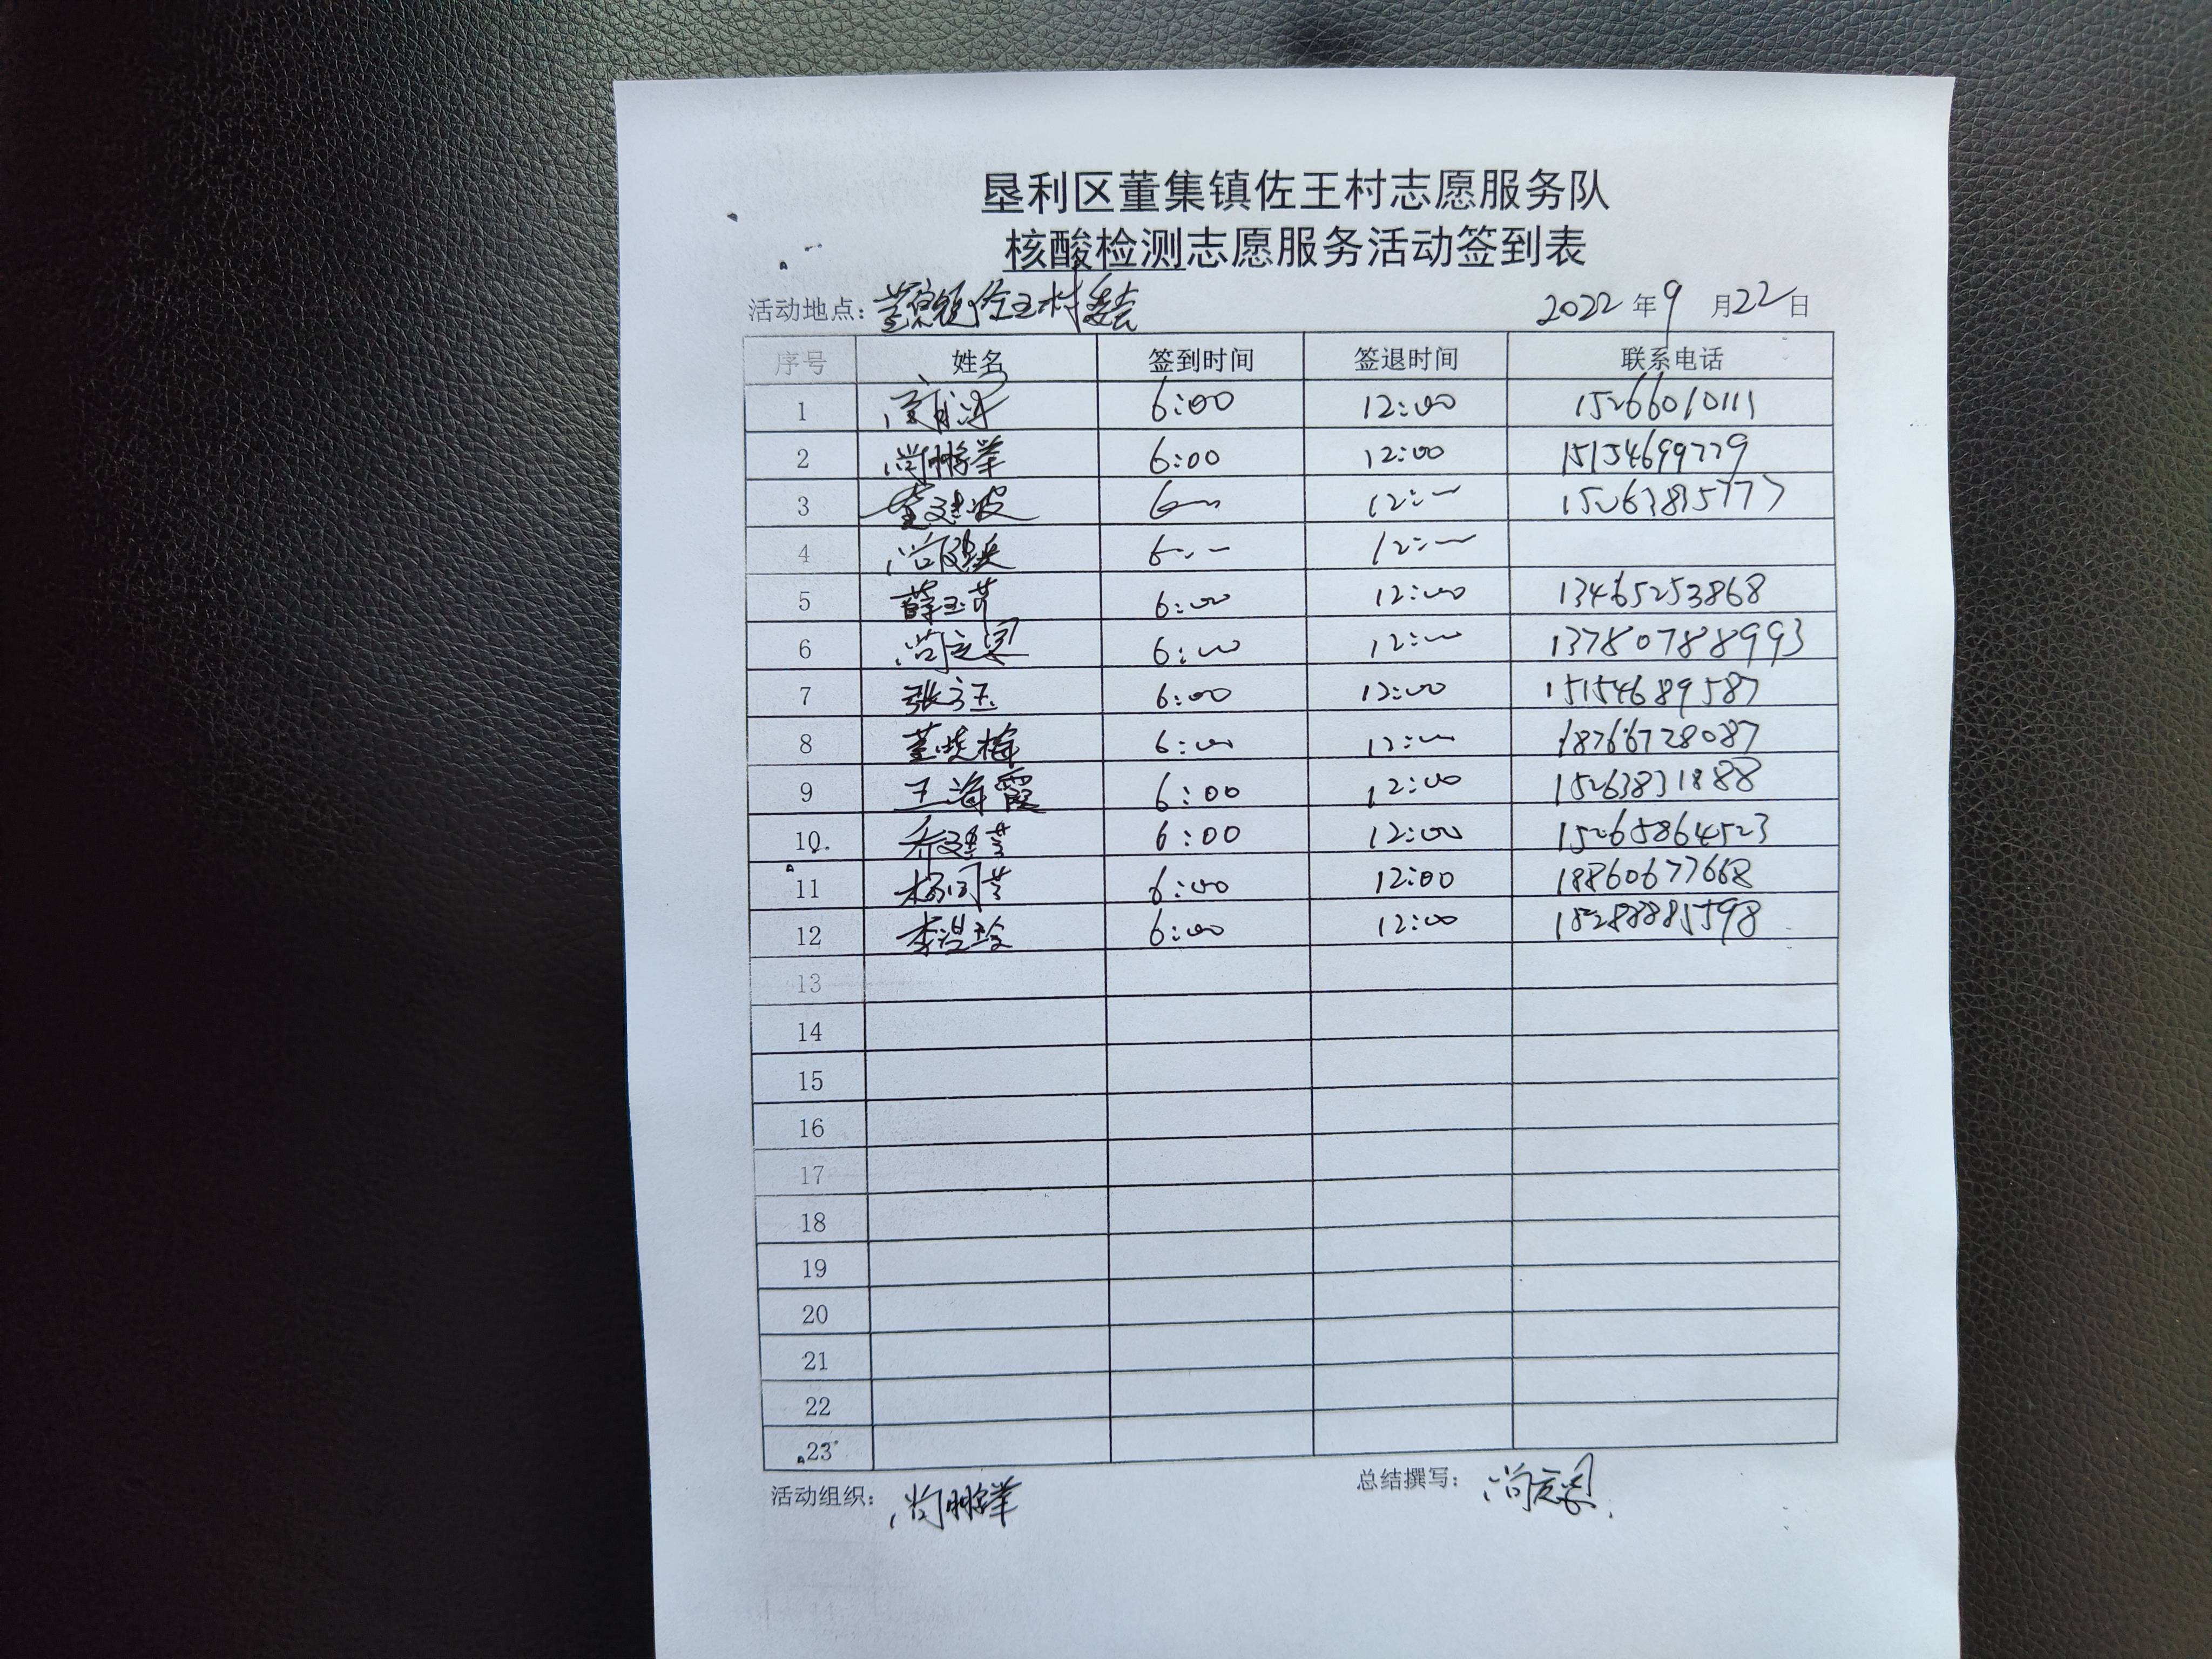 垦利区董集镇佐王村志愿服务队
核酸检测志愿服务活动签到表
活动地点：董集镇佐王村委会 2022年9月22日
序号 姓名 签到时间 签退时间 联系电话
1 6:00 12:00 15266010111
2 尚鹏举 6:00 12:00 15154699779
3 董建波 6:00 12:00 15263815777
4 尚 6:00 12:00
5 薛玉芹 6:00 12:00 13465253868
6 尚立 6:00 12:00 137807888993
7 张方玉 6:00 12:00 15154689587
8 董晓梅 6:00 12:00 18766728087
9 王海霞 6:00 12:00 15263831888
10 乔建芳 6:00 12:00 15265864523
11 杨同芳 6:00 12:00 18860677668
12 李 6:00 12:00
13
14
15
16
17
18
19
20
21
22
23
活动组织：尚鹏举 总结撰写：尚立